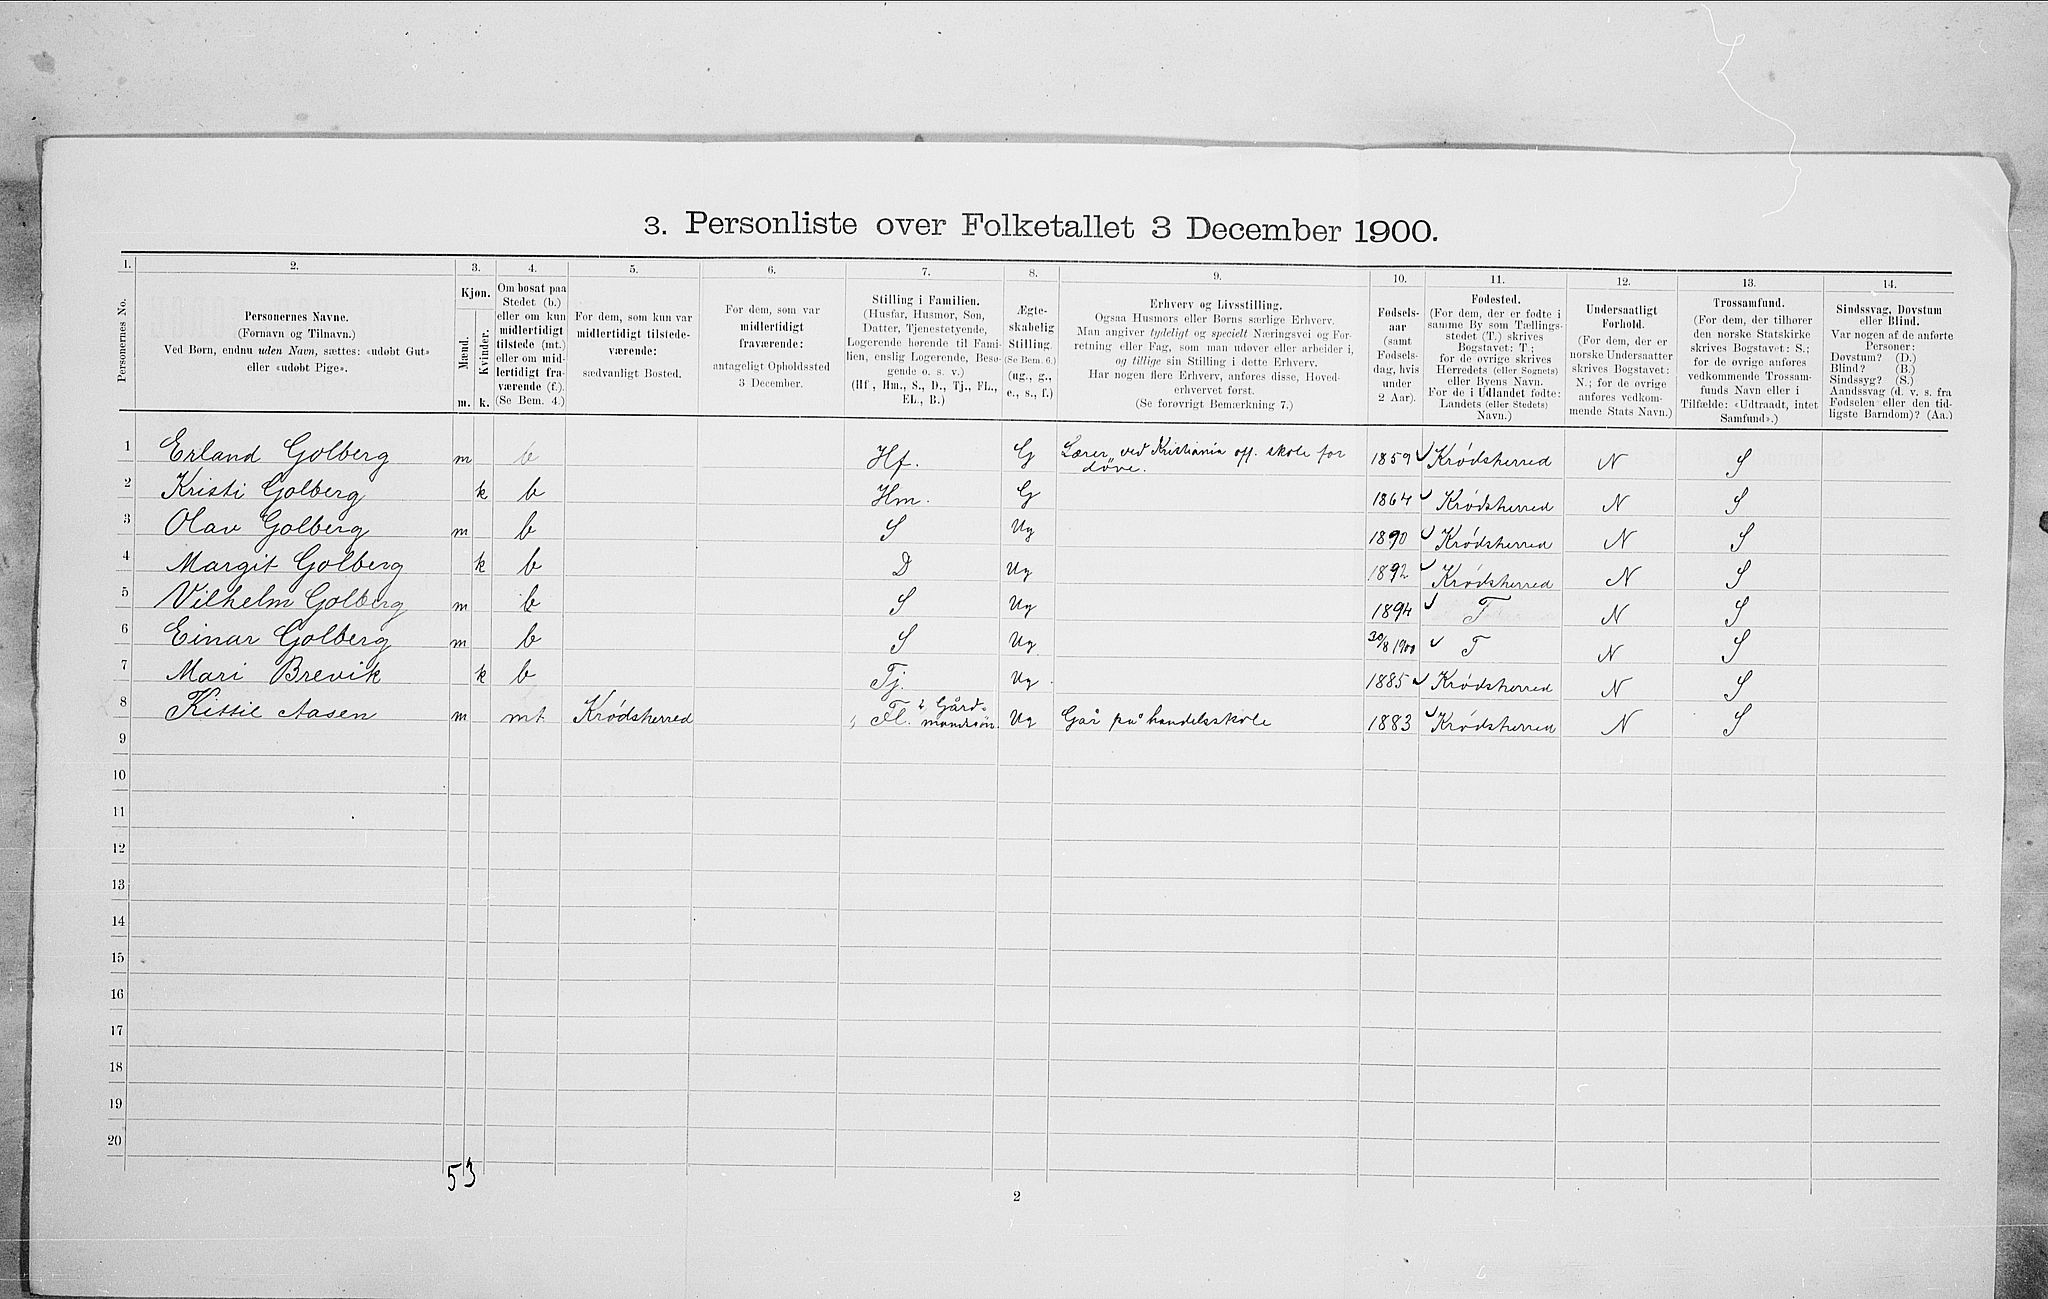 3. Personliste over Folketallet 3 December 1900.
1. 2. 3. 4. 5. 6. 7. 8. 9. 10. 11. 12. 13. 14.
Personernes No.
Personernes Navne.
(Fornavn og Tilnavn.)
Ved Børn, endnu uden Navn, sættes: «udøbt Gut»
eller «udøbt Pige».
Kjøn.
Mænd.
Kvinder.
m. k.
Om bosat paa
Stedet (b.)
eller om kun
midlertidigt
tilstede (mt.)
eller om mid-
lertidigt fra-
værende (f.).
(Se Bem. 4.)
For dem, som kun var
midlertidigt tilstede-
værende:
sædvanligt Bosted.
For dem, som var
midlertidigt
fraværende:
antageligt Opholdssted
3 December.
Stilling i Familien.
(Husfar, Husmor, Søn,
Datter, Tjenestetyende,
Logerende hørende til Fami-
lien, enslig Logerende, Besø-
gende o. s. v.)
(Hf., Hm., S., D., Tj., FL.,
EL., B.)
Ægte-
skabelig
Stilling.
(Se Bem. 6.)
(ug., g.,
e., s., f.)
Erhverv og Livsstilling.
Ogsaa Husmors eller Børns særlige Erhverv.
Man angiver tydeligt og specielt Næringsvei og For-
retning eller Fag, som man udøver eller arbeider i,
og tillige sin Stilling i dette Erhverv.
Har nogen flere Erhverv, anføres disse, Hoved-
erhvervet først.
(Se forøvrigt Bemærkning 7.)
Fødsels-
aar
(samt
Fødsels-
dag, hvis
under
2 Aar).
Fødested.
(For dem, der er fødte i
samme By som Tællings-
stedet (T.) skrives
Bogstavet: T;
for de øvrige skrives
Herredets (eller Sognets)
eller Byens Navn.
For de i Udlandet fødte:
Landets (eller Stedets)
Navn.)
Undersaatligt
Forhold.
(For dem, der er
norske Undersaatter
skrives Bogstavet:
N.; for de øvrige
anføres vedkom-
mende Stats Navn.)
Trossamfund.
(For dem, der tilhører
den norske Statskirke
skrives Bogstavet: S.;
for de øvrige anføres
vedkommende Trossam-
funds Navn eller i
Tilfælde: «Udtraadt, intet
Samfund».)
Sindssvag, Døvstum
eller Blind.
Var nogen af de anførte
Personer:
Døvstum? (D.)
Blind? (B.)
Sindssyg? (S.)
Aandssvag (d. v. s. fra
Fødselen eller den tid-
ligste Barndom)? (Aa.)
1 Erland Golberg m b Hf. G Lærer ved Kristiania off. skole for døve. 1859 Krødsherred N S
2 Kristi Golberg k b Hm. G 1864 Krødsherred N S
3 Olav Golberg m b S Ug 1890 Krødsherred N S
4 Margit Golberg k b D Ug 1892 Krødsherred N S
5 Vilhelm Golberg m b S Ug 1894 T N S
6 Einar Golberg m b S Ug 30/8 1900 T N S
7 Mari Brevik k b Tj. Ug 1885 Krødsherred N S
8 Kittil Aasen m mt. Krødsherred Fl. Gård-mandsøn. Ug Går på handelsskole 1883 Krødsherred N S
9
10
11
12
13
14
15
16
17
18
19
20
5 3
2